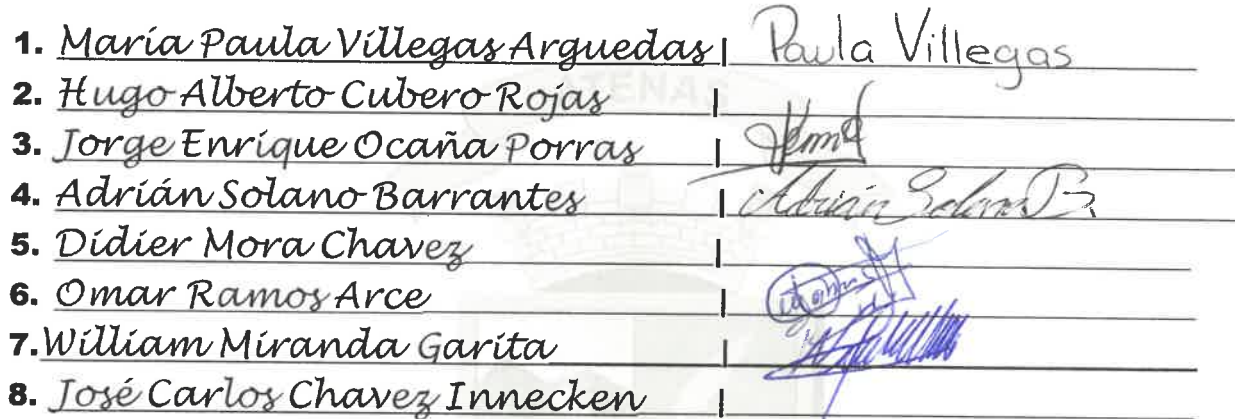 1. María Paula Villegas Arguedas | Paula Villegas
2. Hugo Alberto Cubero Rojas |
ATENAS
3. Jorge Enrique Ocaña Porras |
4. Adrián Solano Barrantes | Adrián Solano B.
5. Didier Mora Chavez |
6. Omar Ramos Arce |
7. William Miranda Garita |
8. José Carlos Chavez Innecken |